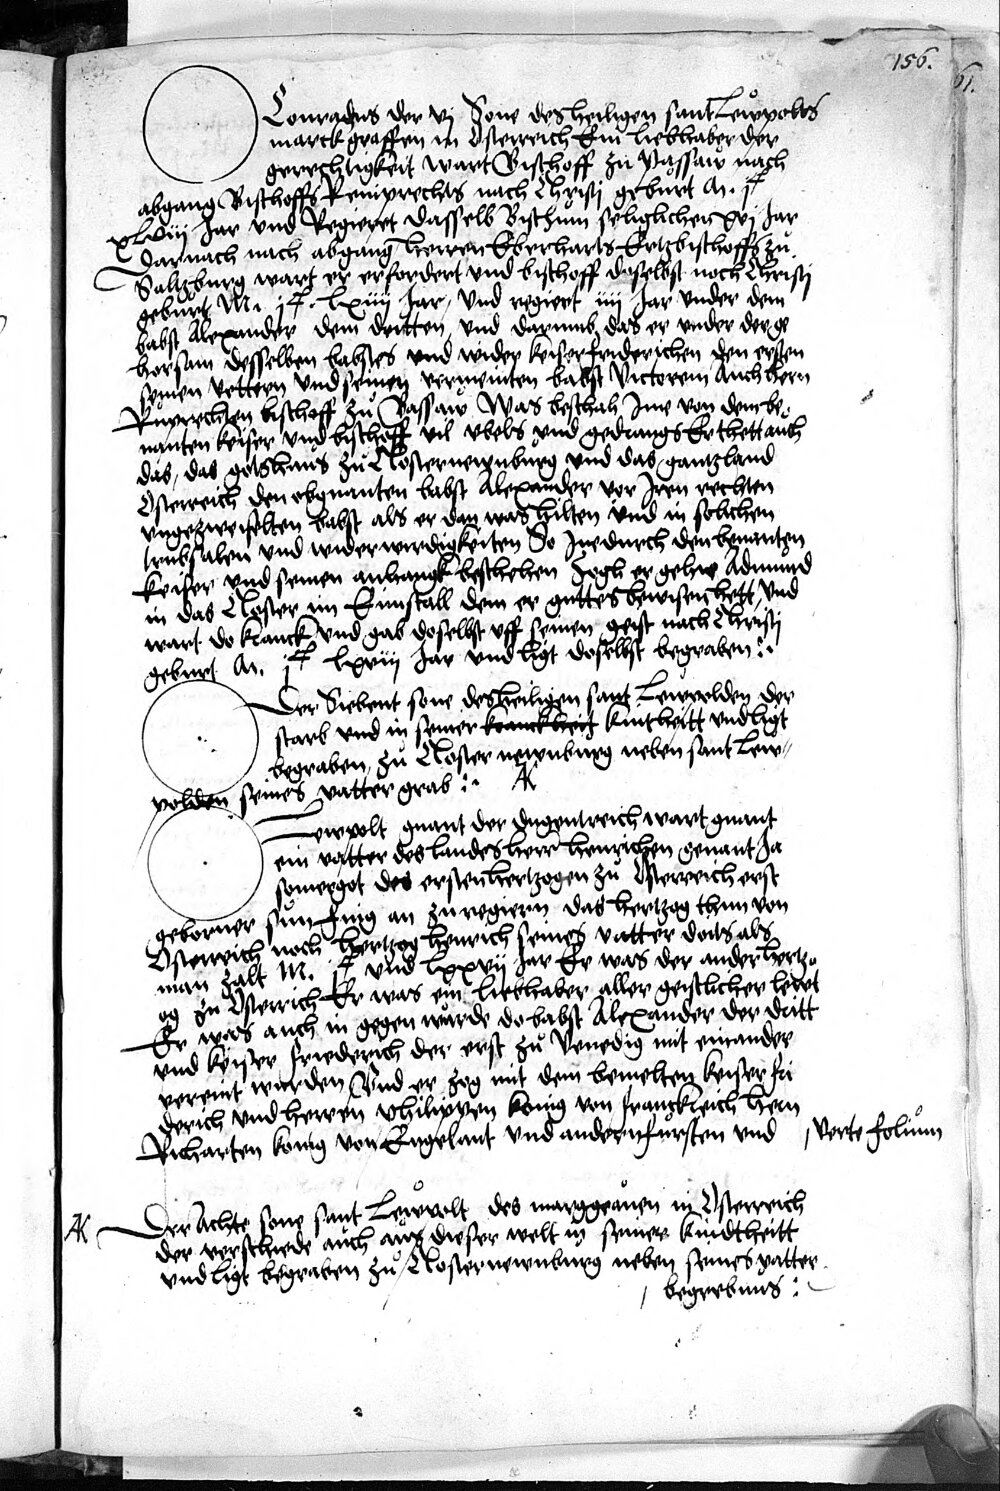 156.
61.
Conradus der vj Sone des heiligen sant Lewpolts
marckgraffen in Osterreich Ein liebhaber der
gerechtigkeit wart Bischoff zu Passaw nach
abgang Bischoffs Reinprechts nach Christi geburt M. jc
xlviij Jar vnd Regieret dasselb Bisthum seliglichen xvj Jar
Darnach nach abgang herren Eberharts Ertzbischoffs zu
Saltzburg wart er erfordert vnd bischoff doselbst noch Christi
geburt M. jc. lxiiij Jar, vnd regiert iiij Jar vnder dem
babst Alexander dem dritten, vnd darumb das er vnder der ge
horsam desselben babstes vnd wider keiser friderichen den ersten
seinen vettern vnd seinen vermeinten babst Victorem Auch hern
Ruprechten bischoff zu Passaw Was beschah Ime von dem be
nanten keiser vnd bischoff vil vbels vnd gedrangs Er thett auch
das, das gotshaus zu Closternewnburg vnd das gantz land
Osterreich den obgnanten babst Alexander vor Iren rechten
vngezweifelten babst als er dan was hilten vnd in solichen
trubsalen vnd widerwirdigkeiten So Ine durch den benanten
keiser vnd seinen anhangk beschehen Zogh er gehn Admund
in das Closter im Einstall dem er guttes bewisen hett, vnd
wart do kranck vnd gab doselbst vff seinen geist nach Christi
geburt M. jc lxviij Jar vnd ligt doselbst begraben :.
Der Siebent sone des heiligen sant Lewpolden der
starb vnd in seiner kranckheit kintheitt vnd ligt
begraben, zu Closternewnburg neben sant Lew=
polden seines vatter grab :.
Lewpolt gnant der dugentreich wart gnant
ein vatter des landes herr henrichen genant Ja
somergot des ersten hertzogen zu Osterreich erst
geborner sun fing an zu regiern das hertzogthum von
Osterreich noch hertzog henrich seines vatter dots als
man zalt M. jc vnd lxxvij Jar Er was der ander hertz=
og zu Osterrich Er was ein liebhaber aller geistlicher lewt
Er was auch in gegenwurde do babst Alexander der dritt
vnd keiser friederich der erst zu Venedig mit einander
vereint wurden, Vnd er zog mit dem bemelten keiser fri
derich vnd herren philippen konig von franckreich hern
Richarten konig von Engelant vnd andern fursten vnd
verte folium
Der Achte sone sant Lewpolt des marggrauen in Osterreich
der verschiede auch aus dieser welt in seiner kindtheitt
vnd ligt begraben zu Closternewnburg neben seines vatter
begrebnus :